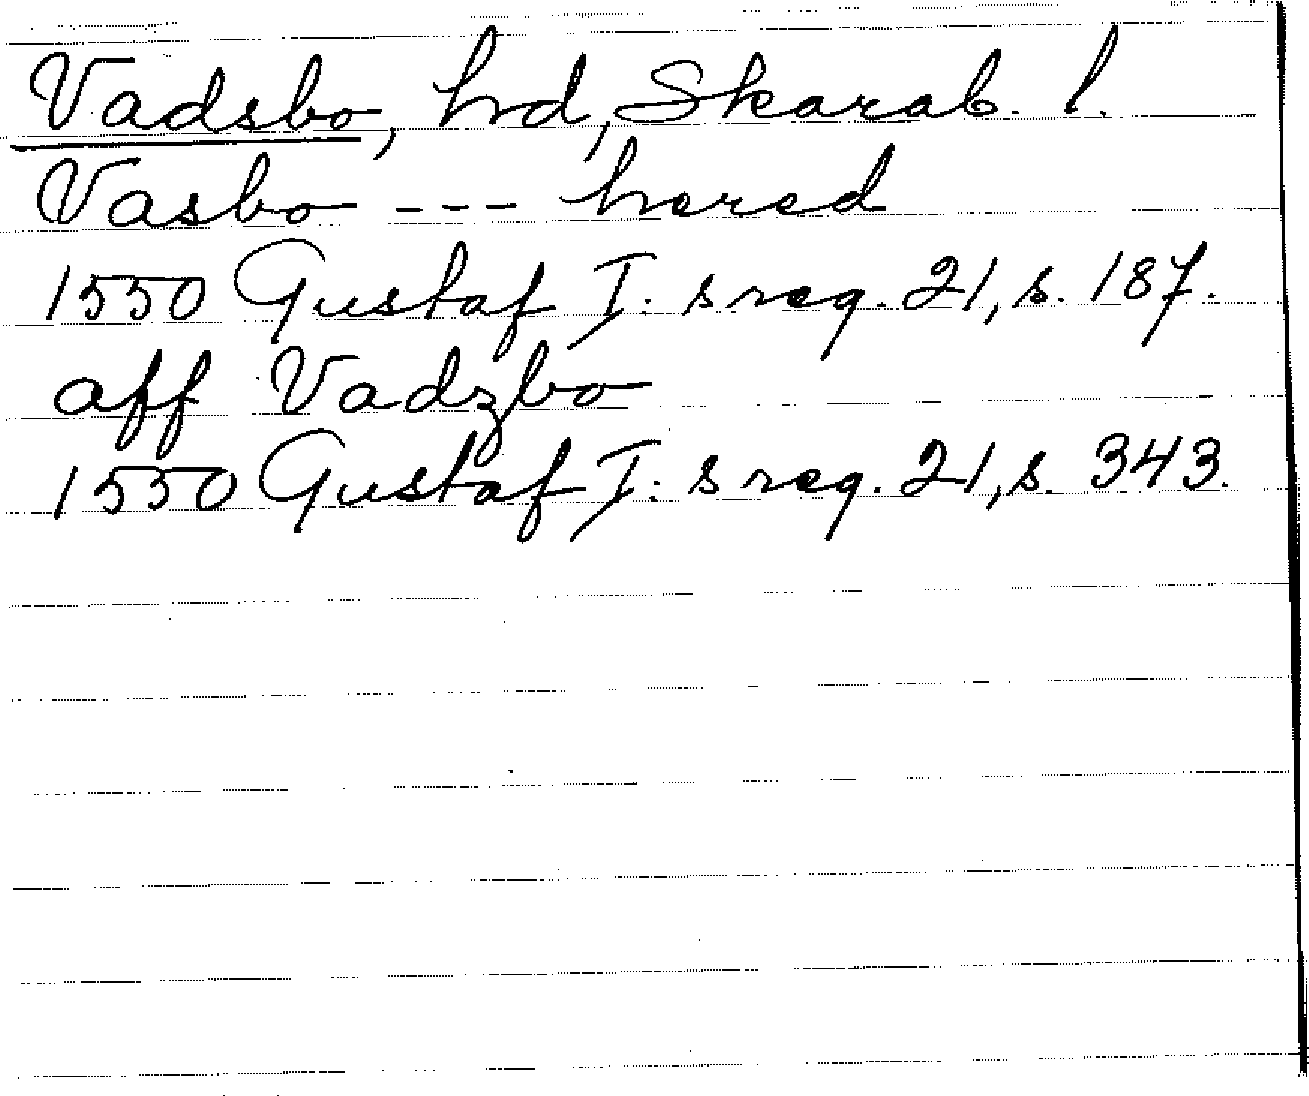 Vadsbo, hrd, Skarab. l.
Vasbo --- hered
1550 Gustaf I:s reg. 21, s. 187.
aff Vadzbo
1550 Gustaf I:s reg. 21, s. 343.